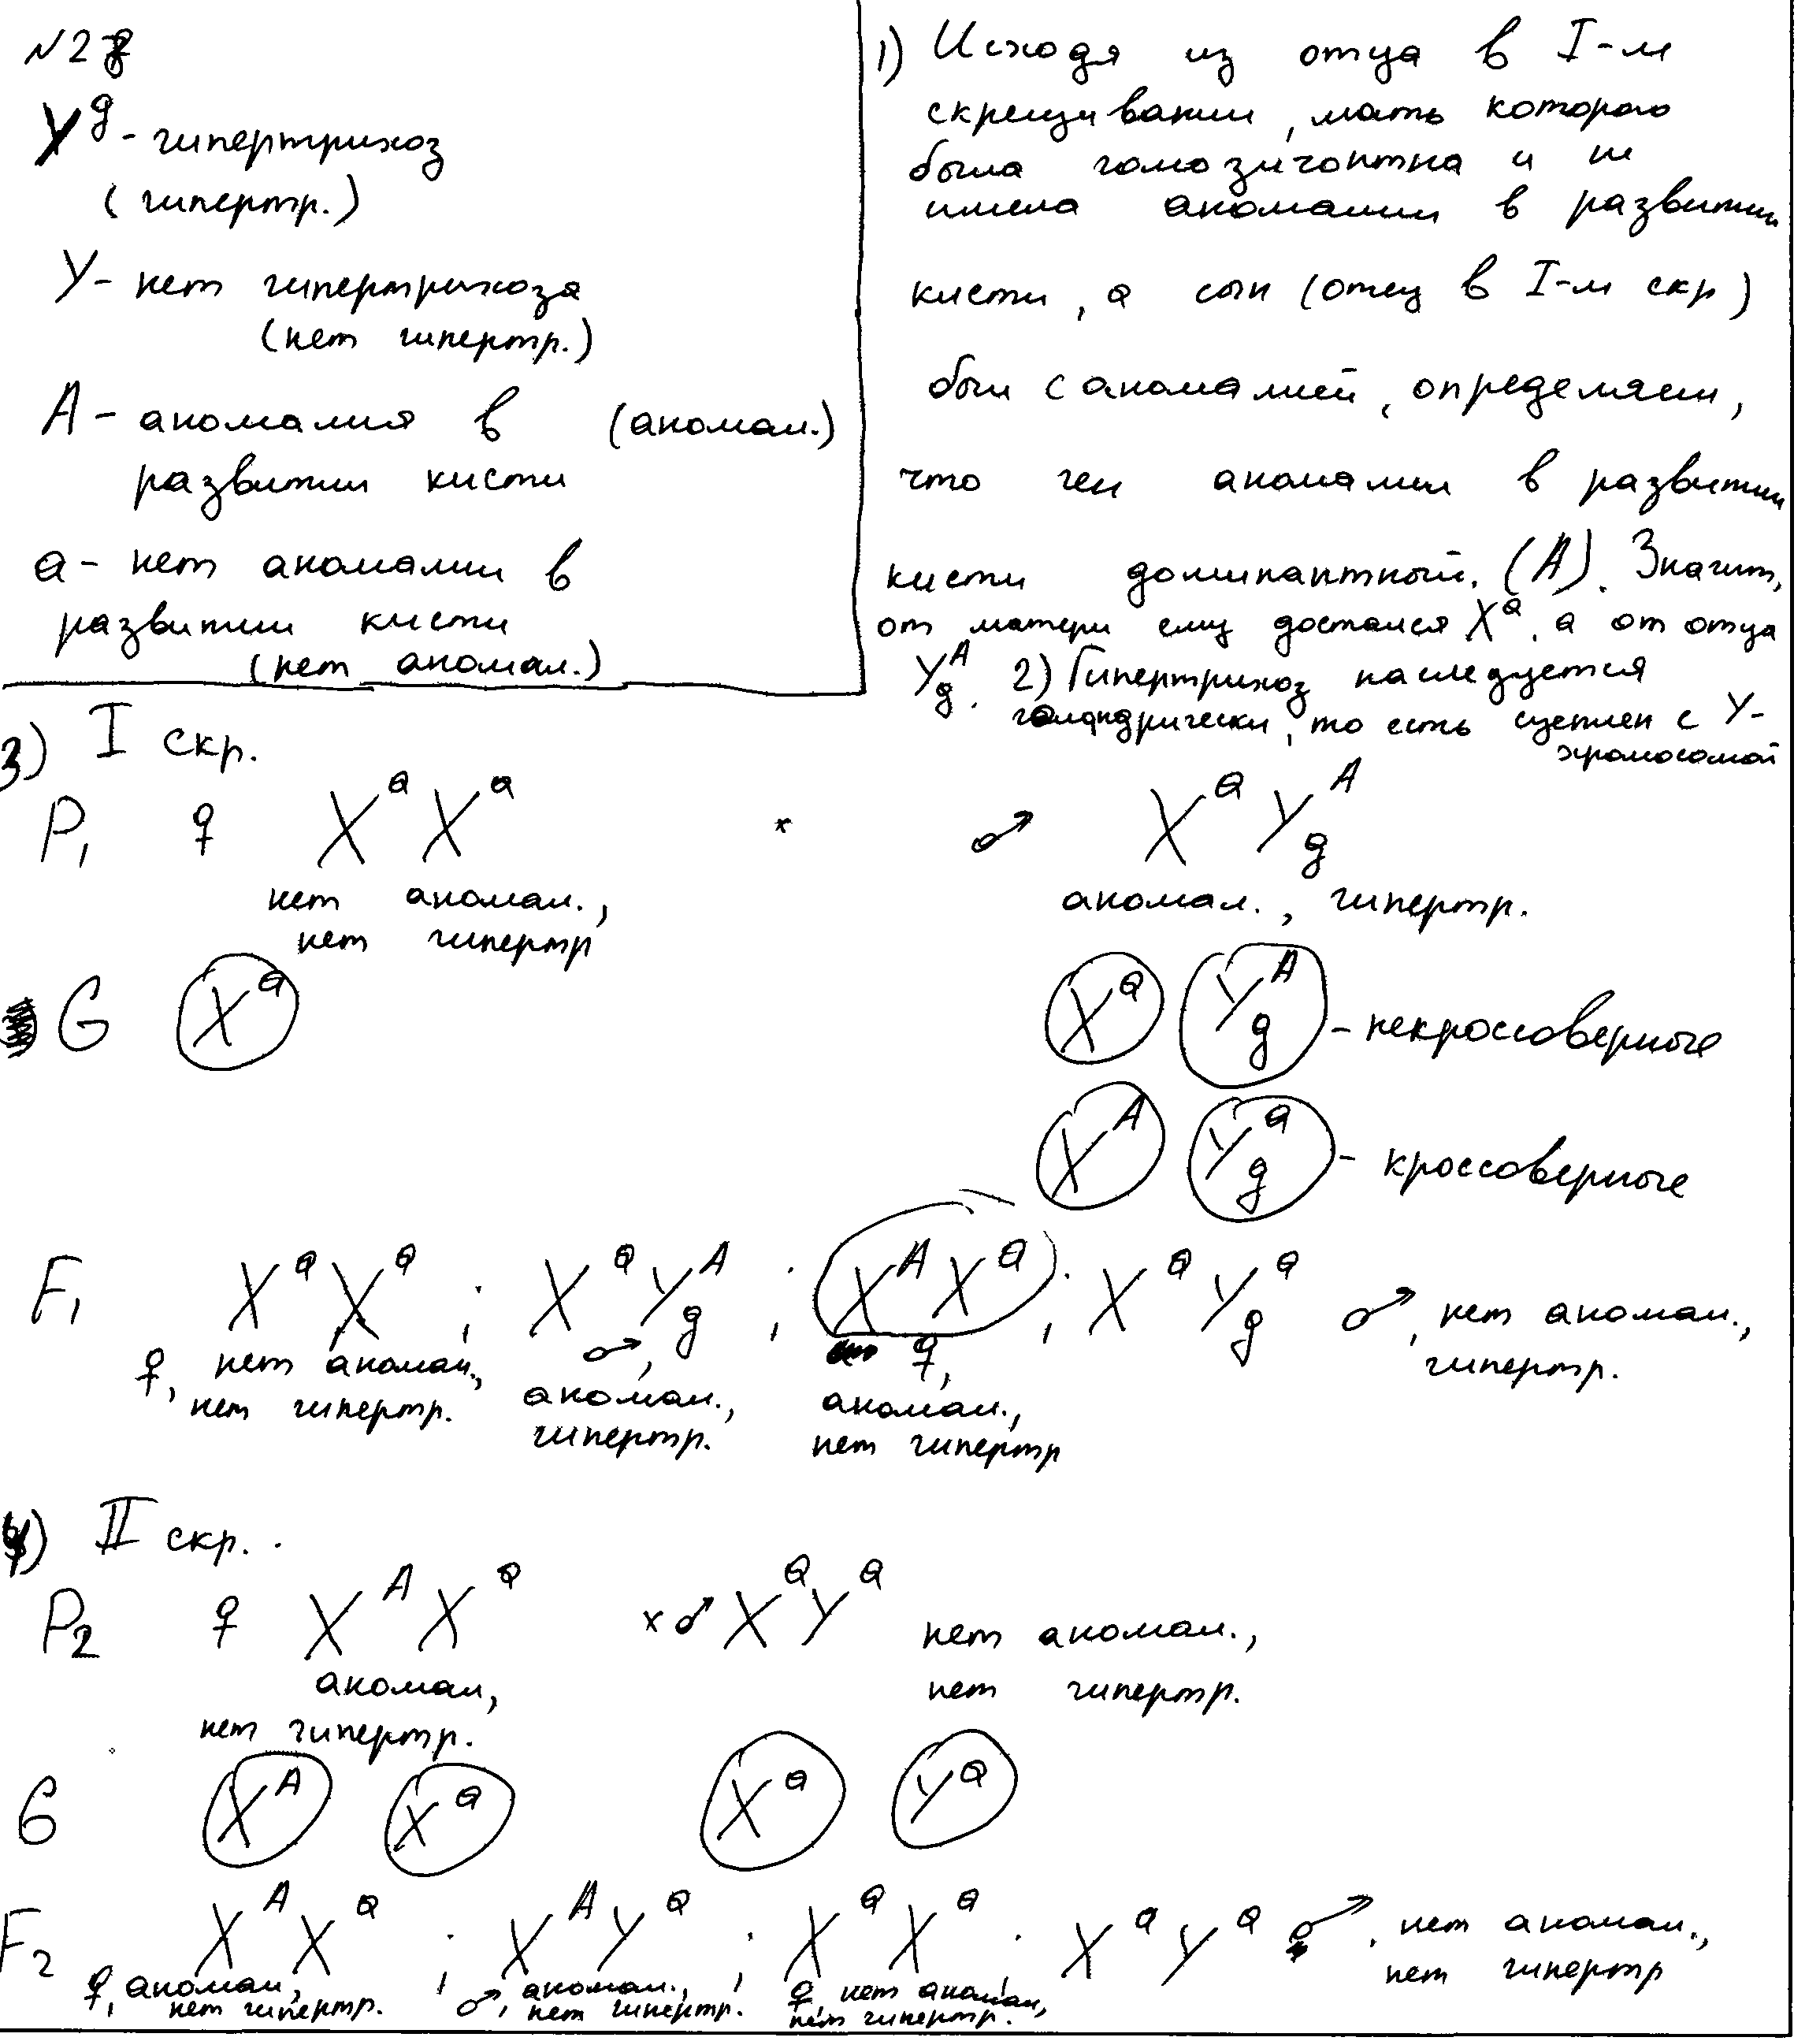 №28
Yᵍ - гипертрихоз
(гипертр.)
Y - нет гипертрихоза
(нет гипертр.)
A - аномалия в (аномал.)
развитии кисти
a - нет аномалии в
развитии кисти
(нет аномал.)
1) Исходя из отца в I-м
скрещивании, мать которого
была гомозиготна и не
имела аномалии в развитии
кисти, а сын (отец в I-м скр)
был с аномалией, определяем,
что ген аномалии в развитии
кисти доминантный. (A). Значит,
от матери ему достался Xᵃ, а от отца
Y_g^A. 2) Гипертрихоз наследуется
голандрически, то есть сцеплен с Y-
хромосомой
3) I скр.
P₁ ♀ XᵃXᵃ × ♂ XᵃY_g^A
нет аномал., аномал., гипертр.
нет гипертр
G Xᵃ Xᵃ Y_g^A - некроссоверные
X^A Y_g^a - кроссоверные
F₁ XᵃXᵃ ; XᵃY_g^A ; X^AXᵃ ; XᵃY_g^a ♂, нет аномал.,
гипертр.
♀, нет аномал., ♂, ♀,
нет гипертр. аномал., аномал.,
гипертр. нет гипертр
4) II скр.
P₂ ♀ X^AXᵃ × ♂ XᵃYᵃ нет аномал.,
аномал, нет гипертр.
нет гипертр.
G X^A Xᵃ Xᵃ Yᵃ
F₂ X^AXᵃ ; X^AYᵃ ; XᵃXᵃ ; XᵃYᵃ ♂, нет аномал.,
нет гипертр
♀, аномал, ♂, аномал., ♀ нет аномал,
нет гипертр. нет гипертр. нет гипертр.